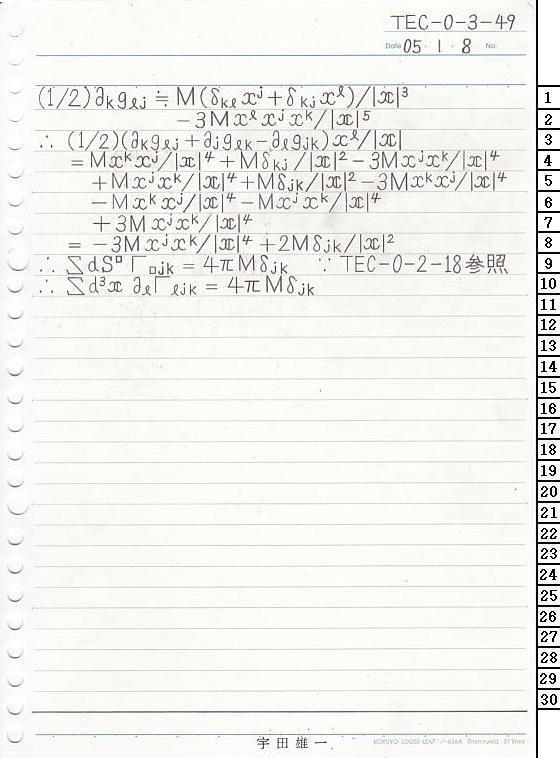 TEC-0-3-49
Date 05・1・8 No.
(1/2)∂kgℓj ≒ M(δkℓ xʲ + δkj xˡ)/|x|³
- 3M xˡ xʲ xᵏ/|x|⁵
∴ (1/2)(∂kgℓj + ∂jgℓk - ∂ℓgjk) xˡ/|x|
= M xᵏ xʲ/|x|⁴ + Mδkj/|x|² - 3M xʲ xᵏ/|x|⁴
+ M xʲ xᵏ/|x|⁴ + Mδjk/|x|² - 3M xᵏ xʲ/|x|⁴
- M xᵏ xʲ/|x|⁴ - M xʲ xᵏ/|x|⁴
+ 3M xʲ xᵏ/|x|⁴
= -3M xʲ xᵏ/|x|⁴ + 2Mδjk/|x|²
∴ ∑ dS□ Γ□jk = 4πMδjk ∵ TEC-0-2-18参照
∴ ∑ d³x ∂ℓΓℓjk = 4πMδjk
1
2
3
4
5
6
7
8
9
10
11
12
13
14
15
16
17
18
19
20
21
22
23
24
25
26
27
28
29
30
宇田雄一
KOKUYO LOOSE-LEAF ノ-836A 7mm ruled 31 lines